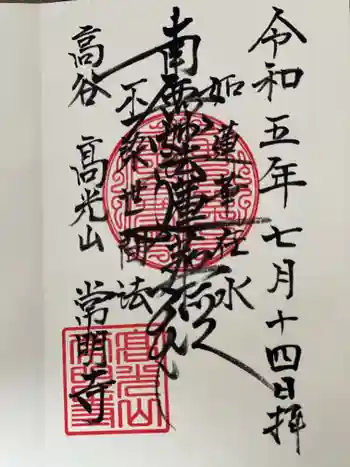 令和五年七月十四日拝
如蓮華在水
南無妙法蓮華経
不染世間法
高谷 高光山 常明寺